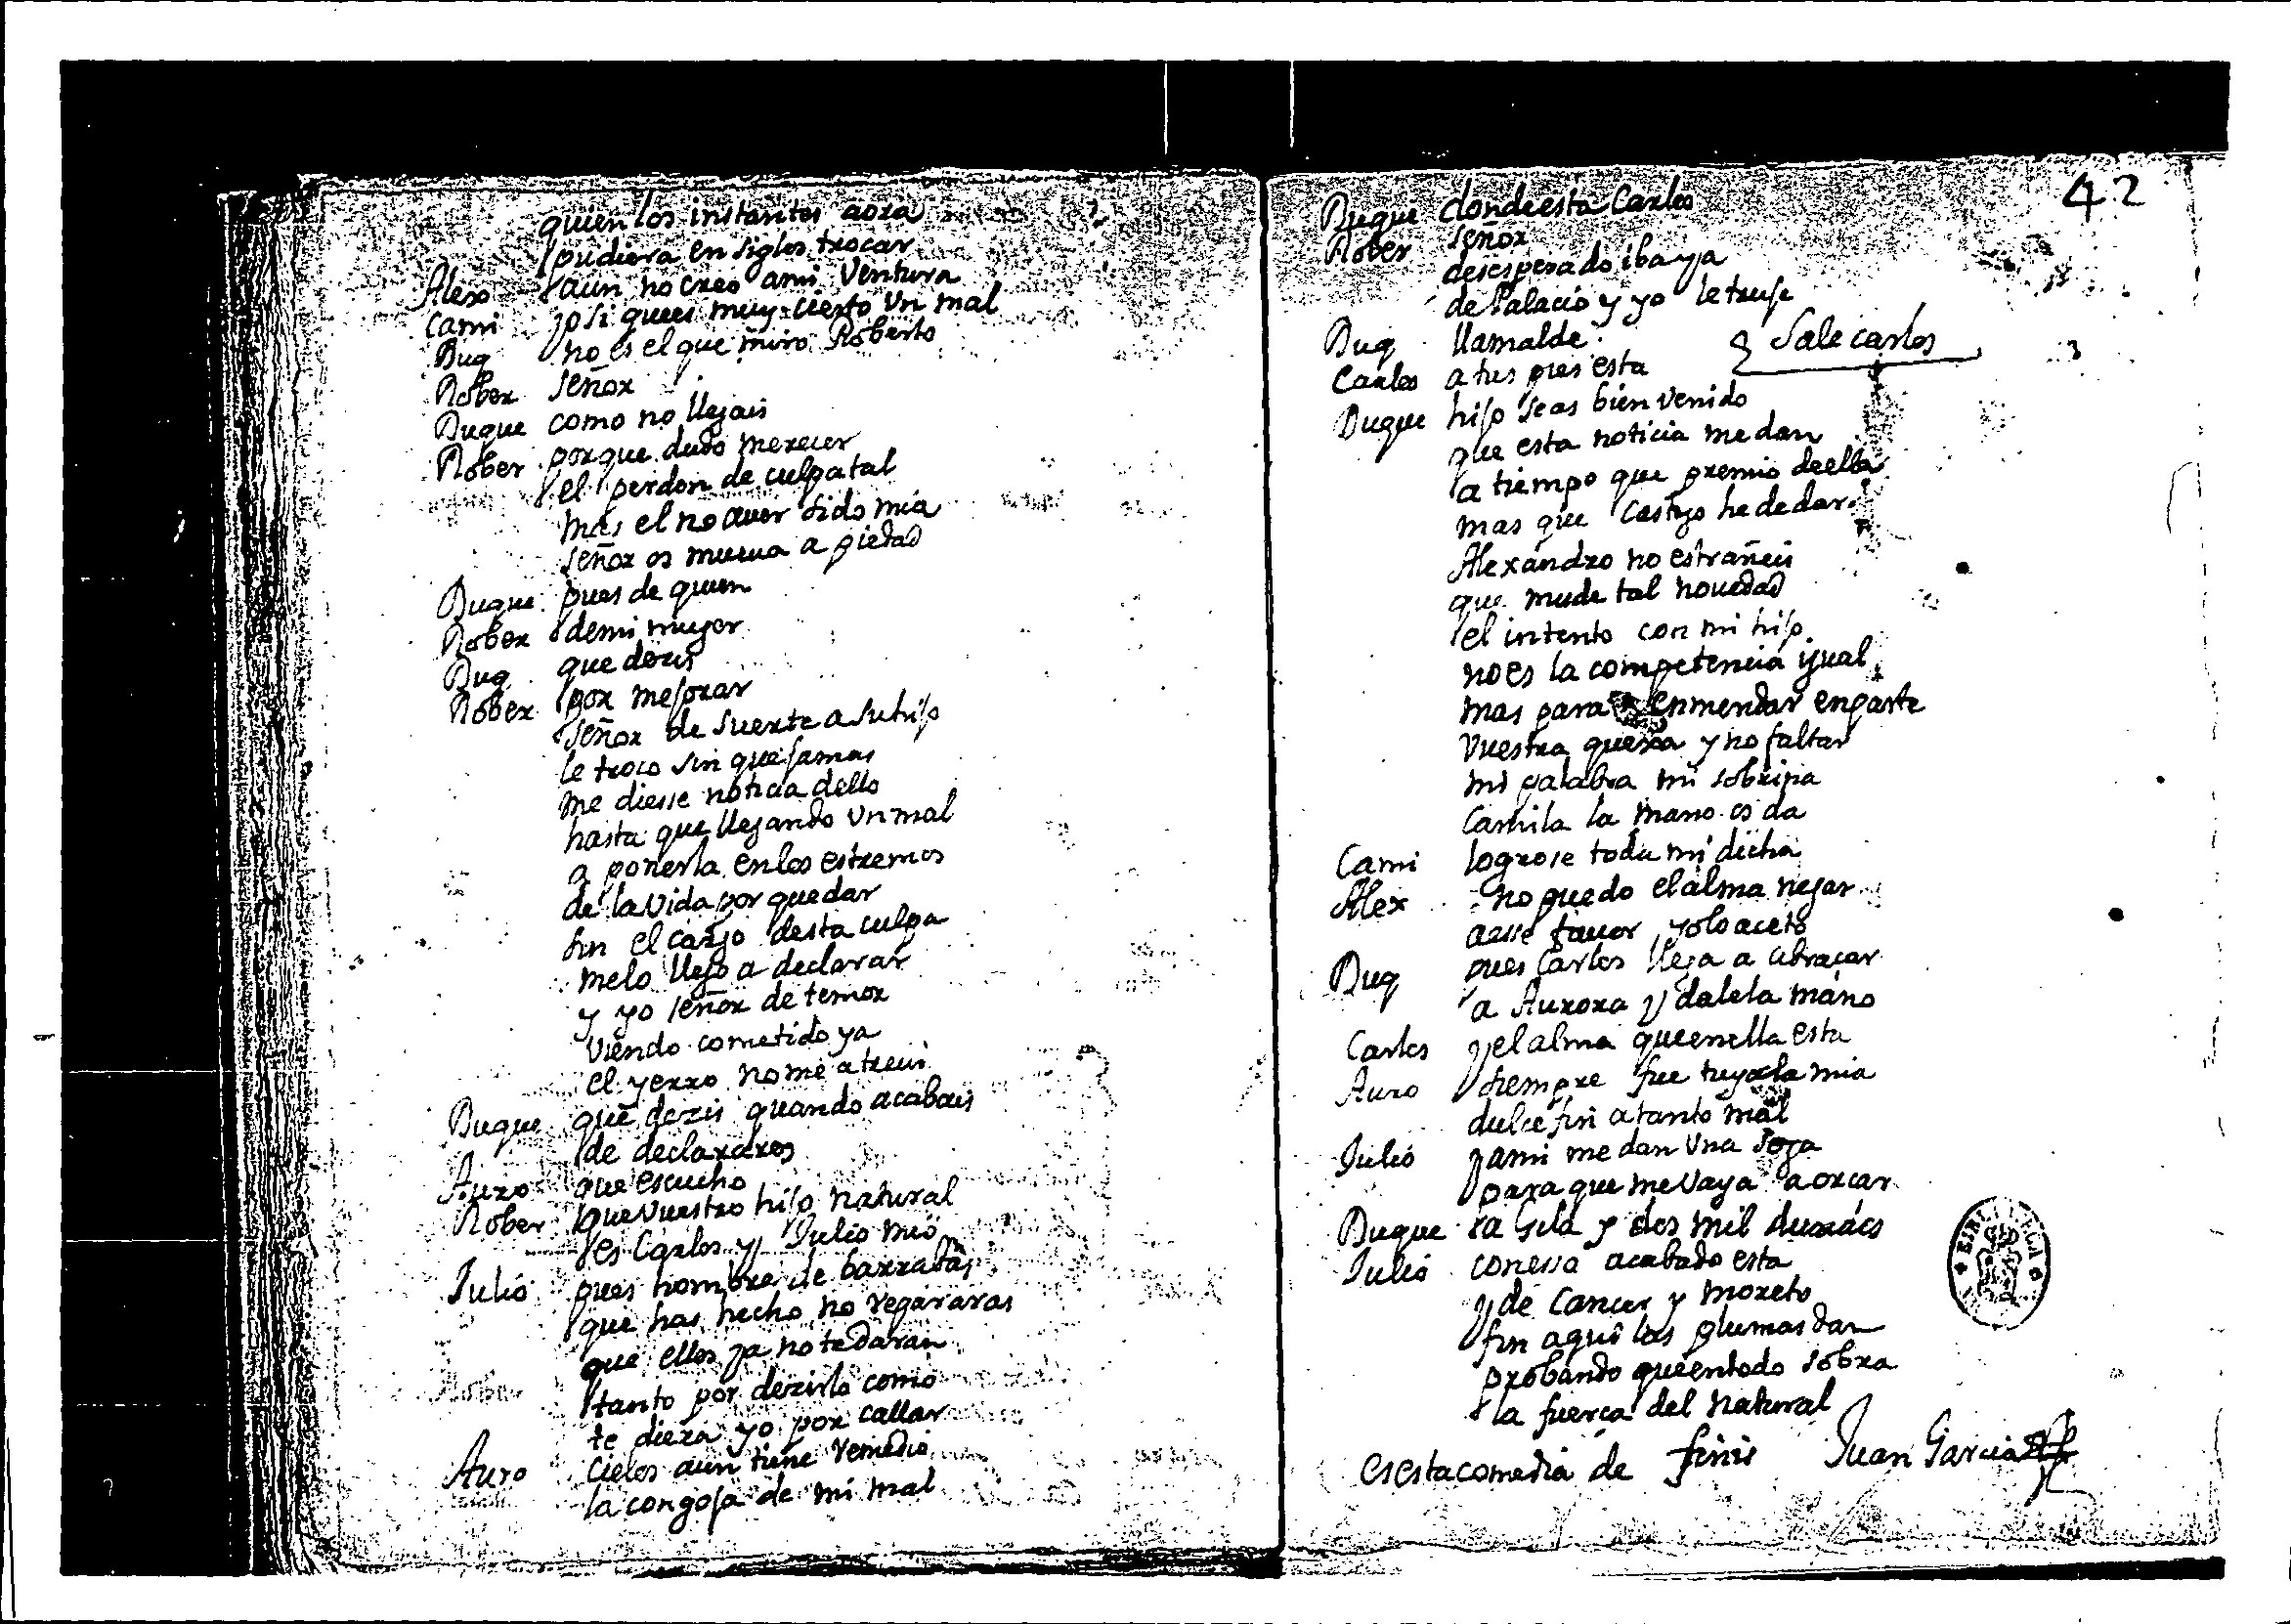 quien los instantes aora
pudiera en siglos trocar
Alex aun no creo a mi Ventura
Cami yo si que es muy cierto Un mal
Duq no es el que miro Roberto
Rober señor
Duque como no llegais
Rober porque dudo merecer
el perdon de culpa tal
mas el no auer sido mia
señor os mueua a piedad
Duque pues de quien
Rober de mi muger
Duq que dezis
Rober por mejorar
señor de suerte a su hijo
le troco sin que jamas
me diesse noticia dello
hasta que llegando Un mal
a ponerla en los estremos
de la vida por quedar
sin el cargo desta culpa
melo llego a declarar
y yo señor de temor
viendo cometido ya
el yerro no me atreui
Duque que dezis quando acabais
de declararos
Auro que escucho
Rober que vuestro hijo natural
es Carlos y Julio mio
Julio pues hombre de barrabas
que has hecho no repararas
que ellos ya no te daran
Rober
tanto por dezirlo como
te diera yo por callar
Auro cielos aun tiene remedio
la congoja de mi mal
42
Duque donde esta Carlos
Rober señor
desesperado iba ya
de Palacio y yo le truje
Duq llamalde
Sale carlos
Carlos a tus pies esta
Duque hijo seas bien venido
que esta noticia me dan
a tiempo que premio de ella
mas que castigo he de dar
Alexandro no estrañeis
que mude tal nouedad
el intento con mi hijo
no es la competencia ygual
mas para enmendar en parte
vuestra quexa y no faltar
mi palabra mi sobrina
Camila la mano os da
Cami logrose toda mi dicha
Alex no puedo el alma negar
a esse fauor yo lo aceto
Duq pues Carlos llega a abraçar
a Aurora y dale la mano
Carlos y el alma que en ella esta
Auro siempre fue tuya la mia
dulce fin a tanto mal
Julio y a mi me dan Una soga
para que me vaya a orcar
Duque ra Gila y dos mil ducados
Julio con esso acabado esta
y de Cancer y moreto
fin aqui las plumas dan
probando que en todo sobra
la fuerça del natural
es esta comedia de finis Juan Garcia